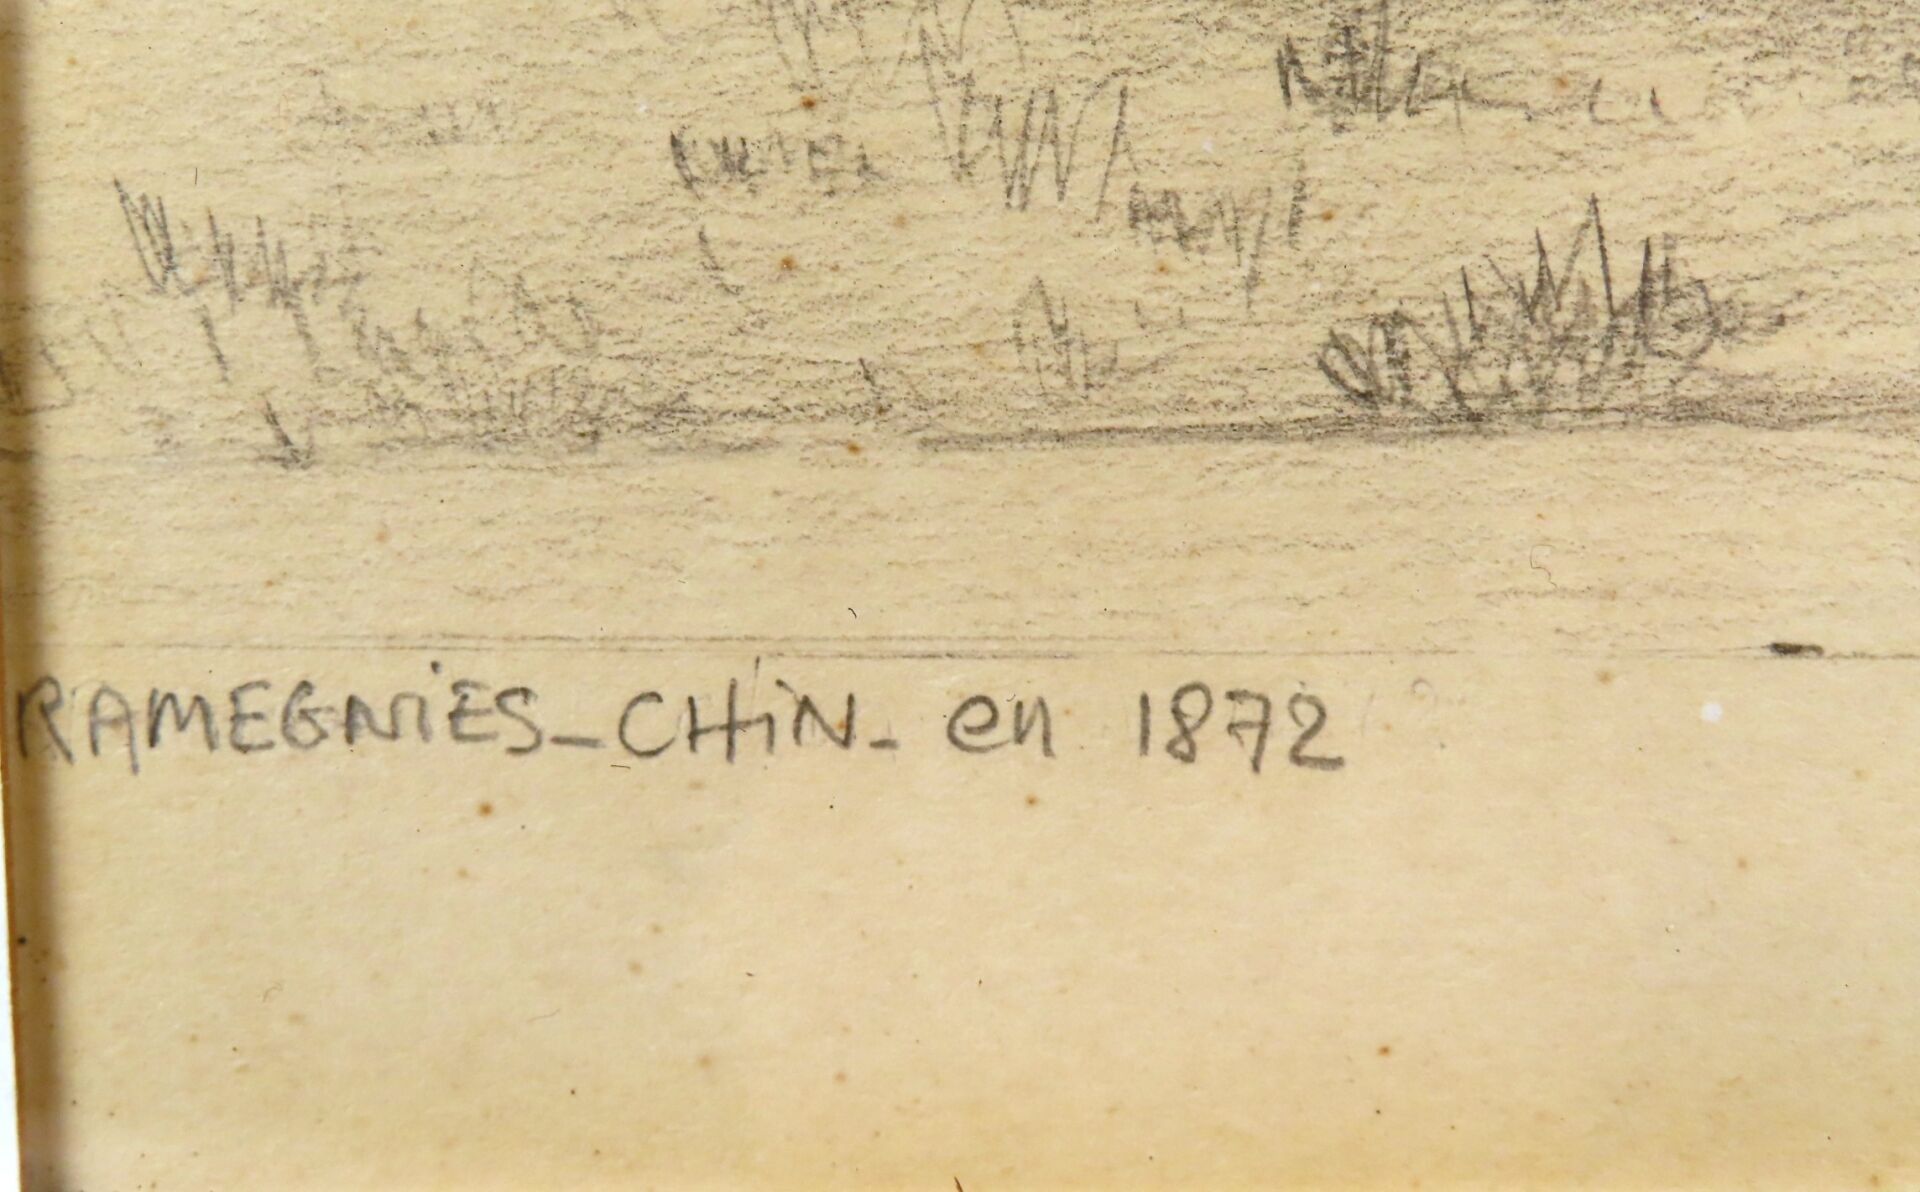 RAMEGNiES-CHiN- en 1872